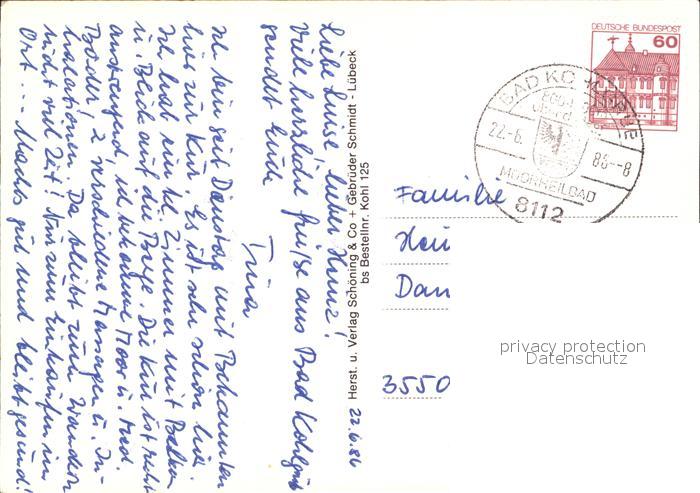 22.6.86
Liebe Luise, lieber Heinz!
Viele herzliche Grüße aus Bad Kohlgrub
sendet Euch
Irma
Ich bin seit Dienstag mit Bekannten
hier zur Kur. Es ist sehr schön hier.
Ich hab ein kl. Zimmer mit Balkon
u. Blick auf die Berge. Die Kur ist recht
anstrengend, ich bekomme Moor u. med.
Bäder, 2 verschiedene Massagen u. In-
halationen. Da bleibt zum Wandern
nicht viel Zeit! Nur zum Einkaufen im
Ort... Machts gut und bleibt gesund!
Herst. u. Verlag Schöning & Co + Gebrüder Schmidt - Lübeck
bs Bestellnr. Kohl 125
DEUTSCHE BUNDESPOST
60
BAD KOHLGRUB
22.-6. 86--8
MOORHEILBAD
8112
Familie
Hei
Dan
3550
privacy protection
Datenschutz